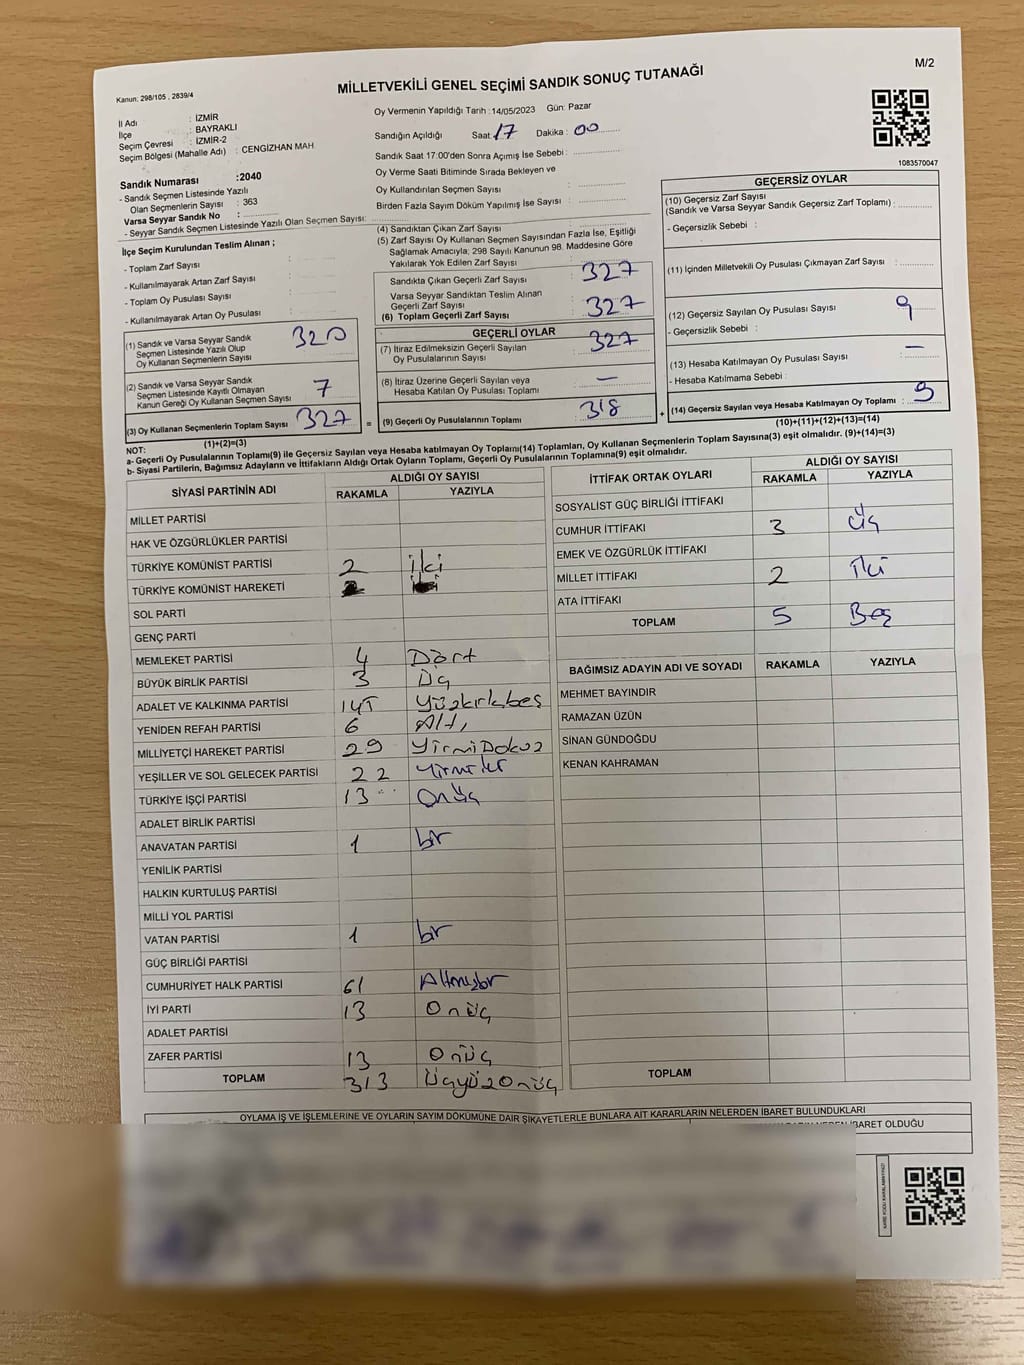 M/2
MİLLETVEKİLİ GENEL SEÇİMİ SANDIK SONUÇ TUTANAĞI
Kanun: 298/105 , 2839/4
İl Adı : İZMİR
İlçe : BAYRAKLI
Seçim Çevresi : İZMİR-2
Seçim Bölgesi (Mahalle Adı) : CENGİZHAN MAH
Sandık Numarası :2040
- Sandık Seçmen Listesinde Yazılı
Olan Seçmenlerin Sayısı : 363
Varsa Seyyar Sandık No :
- Seyyar Sandık Seçmen Listesinde Yazılı Olan Seçmen Sayısı:
Oy Vermenin Yapıldığı Tarih :14/05/2023 Gün: Pazar
Sandığın Açıldığı Saat : 17 Dakika : 00
Sandık Saat 17:00'den Sonra Açımış İse Sebebi :
Oy Verme Saati Bitiminde Sırada Bekleyen ve
Oy Kullandırılan Seçmen Sayısı :
Birden Fazla Sayım Döküm Yapılmış İse Sayısı :
1083570047
İlçe Seçim Kurulundan Teslim Alınan ;
- Toplam Zarf Sayısı :
- Kullanılmayarak Artan Zarf Sayısı :
- Toplam Oy Pusulası Sayısı :
- Kullanılmayarak Artan Oy Pusulası :
(1) Sandık ve Varsa Seyyar Sandık
Seçmen Listesinde Yazılı Olup
Oy Kullanan Seçmenlerin Sayısı 320
(2) Sandık ve Varsa Seyyar Sandık
Seçmen Listesinde Kayıtlı Olmayan
Kanun Gereği Oy Kullanan Seçmen Sayısı 7
(3) Oy Kullanan Seçmenlerin Toplam Sayısı 327
(1)+(2)=(3)
(4) Sandıktan Çıkan Zarf Sayısı :
(5) Zarf Sayısı Oy Kullanan Seçmen Sayısından Fazla İse, Eşitliği
Sağlamak Amacıyla; 298 Sayılı Kanunun 98. Maddesine Göre
Yakılarak Yok Edilen Zarf Sayısı :
Sandıkta Çıkan Geçerli Zarf Sayısı : 327
Varsa Seyyar Sandıktan Teslim Alınan
Geçerli Zarf Sayısı
(6) Toplam Geçerli Zarf Sayısı : 327
GEÇERLİ OYLAR
(7) İtiraz Edilmeksizin Geçerli Sayılan
Oy Pusulalarının Sayısı : 327
(8) İtiraz Üzerine Geçerli Sayılan veya
Hesaba Katılan Oy Pusulası Toplamı : —
= (9) Geçerli Oy Pusulalarının Toplamı : 318 +
GEÇERSİZ OYLAR
(10) Geçersiz Zarf Sayısı
(Sandık ve Varsa Seyyar Sandık Geçersiz Zarf Toplamı) :
- Geçersizlik Sebebi :
(11) İçinden Milletvekili Oy Pusulası Çıkmayan Zarf Sayısı :
(12) Geçersiz Sayılan Oy Pusulası Sayısı : 9
- Geçersizlik Sebebi :
(13) Hesaba Katılmayan Oy Pusulası Sayısı : —
- Hesaba Katılmama Sebebi :
(14) Geçersiz Sayılan veya Hesaba Katılmayan Oy Toplamı : 9
(10)+(11)+(12)+(13)=(14)
NOT:
a- Geçerli Oy Pusulasının Toplamı(9) ile Geçersiz Sayılan veya Hesaba katılmayan Oy Toplamı(14) Toplamları, Oy Kullanan Seçmenlerin Toplam Sayısına(3) eşit olmalıdır. (9)+(14)=(3)
b- Siyasi Partilerin, Bağımsız Adayların ve İttifakların Aldığı Ortak Oyların Toplamı, Geçerli Oy Pusulalarının Toplamına(9) eşit olmalıdır.
SİYASİ PARTİNİN ADI ALDIĞI OY SAYISI
RAKAMLA YAZIYLA
MİLLET PARTİSİ
HAK VE ÖZGÜRLÜKLER PARTİSİ
TÜRKİYE KOMÜNİST PARTİSİ 2 iki
TÜRKİYE KOMÜNİST HAREKETİ
SOL PARTİ
GENÇ PARTİ
MEMLEKET PARTİSİ 4 Dört
BÜYÜK BİRLİK PARTİSİ 3 Üç
ADALET VE KALKINMA PARTİSİ 145 Yüzkırkbeş
YENİDEN REFAH PARTİSİ 6 Altı
MİLLİYETÇİ HAREKET PARTİSİ 29 YirmiDokuz
YEŞİLLER VE SOL GELECEK PARTİSİ 22 Yirmiiki
TÜRKİYE İŞÇİ PARTİSİ 13 Onüç
ADALET BİRLİK PARTİSİ
ANAVATAN PARTİSİ 1 bir
YENİLİK PARTİSİ
HALKIN KURTULUŞ PARTİSİ
MİLLİ YOL PARTİSİ
VATAN PARTİSİ 1 bir
GÜÇ BİRLİĞİ PARTİSİ
CUMHURİYET HALK PARTİSİ 61 Altmışbir
İYİ PARTİ 13 Onüç
ADALET PARTİSİ
ZAFER PARTİSİ 13 Onüç
TOPLAM 313 Üçyüzonüç
İTTİFAK ORTAK OYLARI ALDIĞI OY SAYISI
RAKAMLA YAZIYLA
SOSYALİST GÜÇ BİRLİĞİ İTTİFAKI
CUMHUR İTTİFAKI 3 Üç
EMEK VE ÖZGÜRLÜK İTTİFAKI
MİLLET İTTİFAKI 2 İki
ATA İTTİFAKI
TOPLAM 5 Beş
BAĞIMSIZ ADAYIN ADI VE SOYADI RAKAMLA YAZIYLA
MEHMET BAYINDIR
RAMAZAN ÜZÜN
SİNAN GÜNDOĞDU
KENAN KAHRAMAN
TOPLAM
OYLAMA İŞ VE İŞLEMLERİNE VE OYLARIN SAYIM DÖKÜMÜNE DAİR ŞİKAYETLERLE BUNLARA AİT KARARLARIN NELERDEN İBARET BULUNDUKLARI
İBARET OLDUĞU
KARE KODU KARALAMAYINIZ!